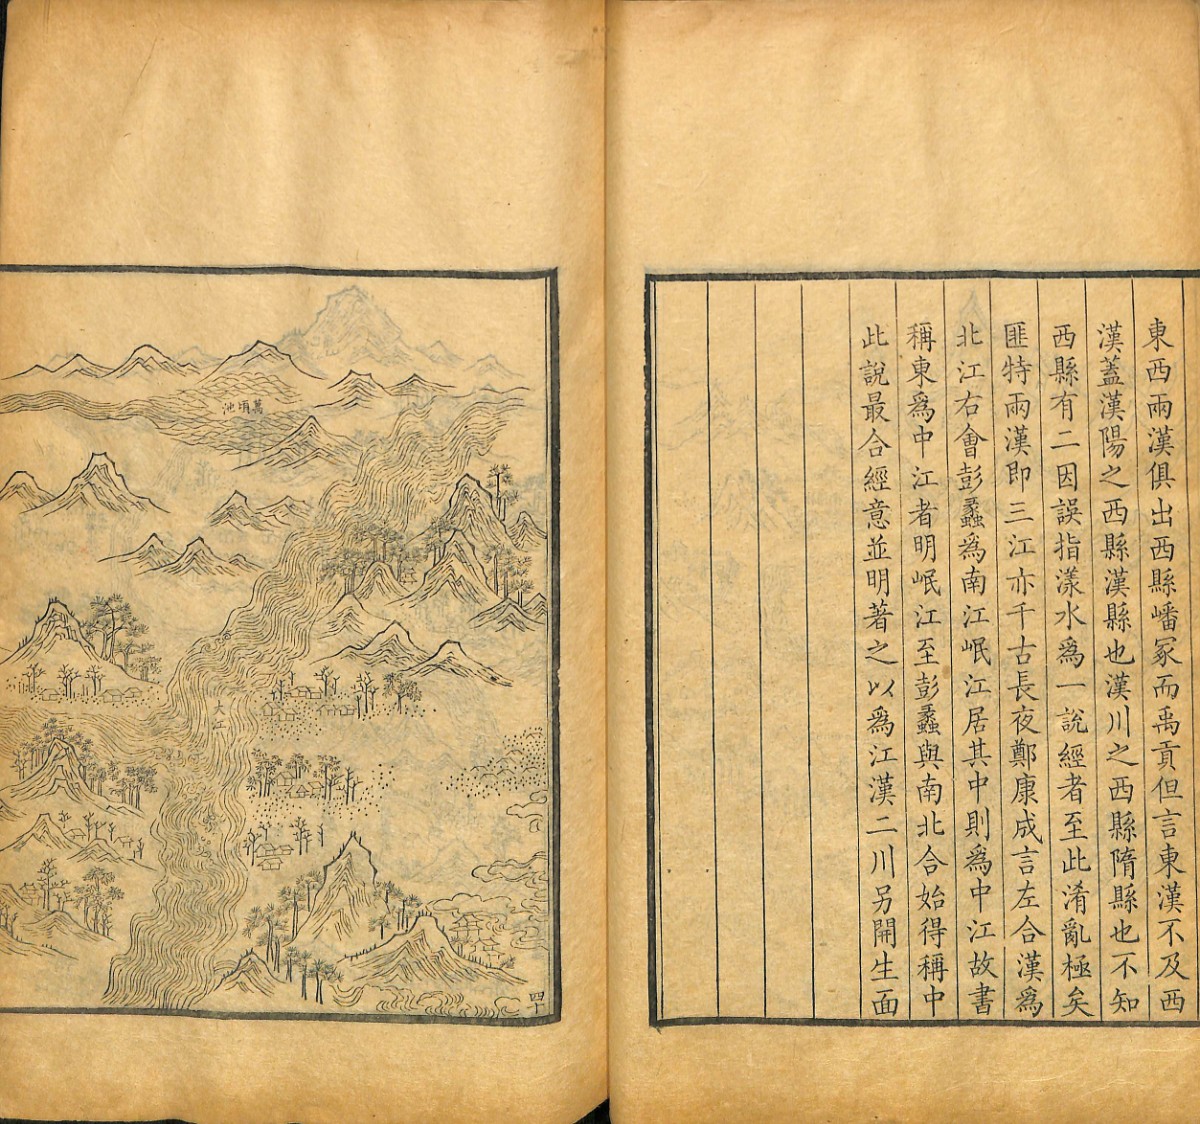 東西兩漢俱出西縣嶓冢而禹貢但言東漢不及西
漢蓋漢陽之西縣漢縣也漢川之西縣隋縣也不知
西縣有二因誤指漾水爲一說經者至此淆亂極矣
匪特兩漢即三江亦千古長夜鄭康成言左合漢爲
北江右會彭蠡爲南江岷江居其中則爲中江故書
稱東爲中江者明岷江至彭蠡與南北合始得稱中
此說最合經意並明著之以爲江漢二川另開生面
萬頃池
大江
四十